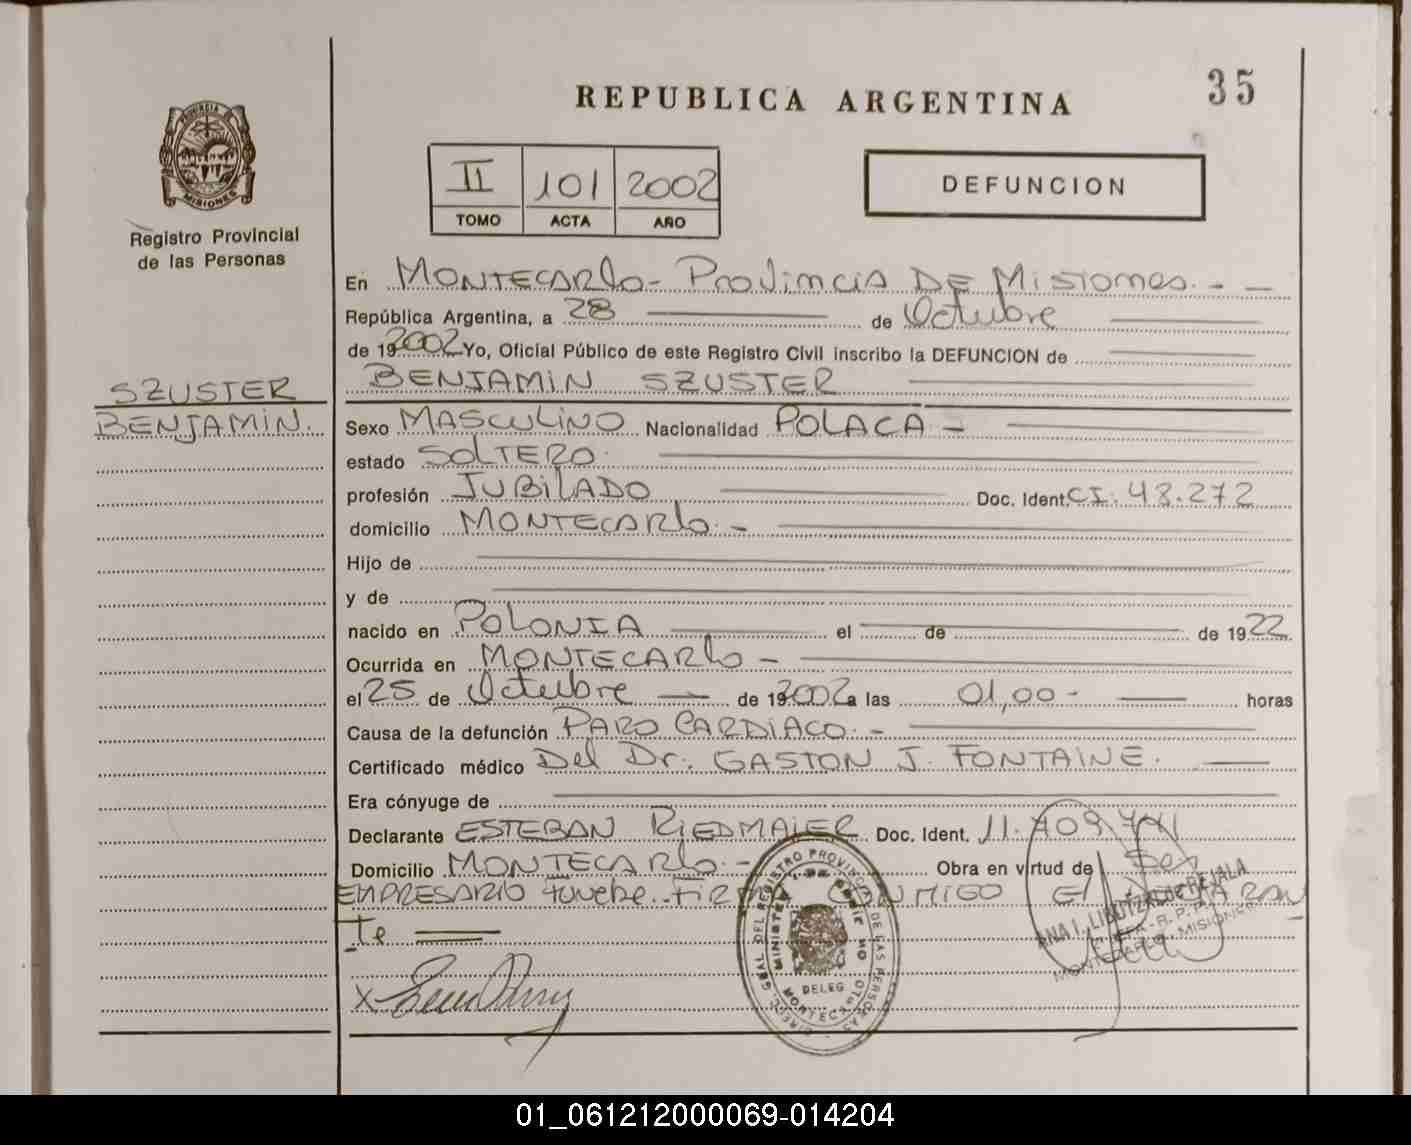 REPUBLICA ARGENTINA
35
PROVINCIA DE
MISIONES
Registro Provincial
de las Personas
II 101 2002
TOMO ACTA AÑO
DEFUNCION
En MONTECARLO- PROVINCIA DE MISIONES. - -
República Argentina, a 28 de Octubre
de 192002 Yo, Oficial Público de este Registro Civil inscribo la DEFUNCION de
BENJAMIN SZUSTER
SZUSTER
BENJAMIN.
Sexo MASCULINO Nacionalidad POLACA -
estado SOLTERO.
profesión JUBILADO Doc. Ident. CI. 48.272
domicilio MONTECARLO. -
Hijo de
y de
nacido en POLONIA el de de 1922
Ocurrida en MONTECARLO -
el 25 de Octubre de 192002 a las 01,00- horas
Causa de la defunción PARO CARDIACO. -
Certificado médico Del Dr. GASTON J. FONTAINE.
Era cónyuge de
Declarante ESTEBAN RIEDMAIER Doc. Ident. 11.
Domicilio MONTECARLO. - Obra en virtud de Ser
EMPRESARIO funebre. FIRMA CONMIGO El DECLARAN
te
X
DIREC. GRAL DEL REGISTRO PROVINCIAL DE LAS PERSONAS
DELEG
MONTECARLO
ANA I.
MONTECARLO - MISIONES
01_061212000069-014204